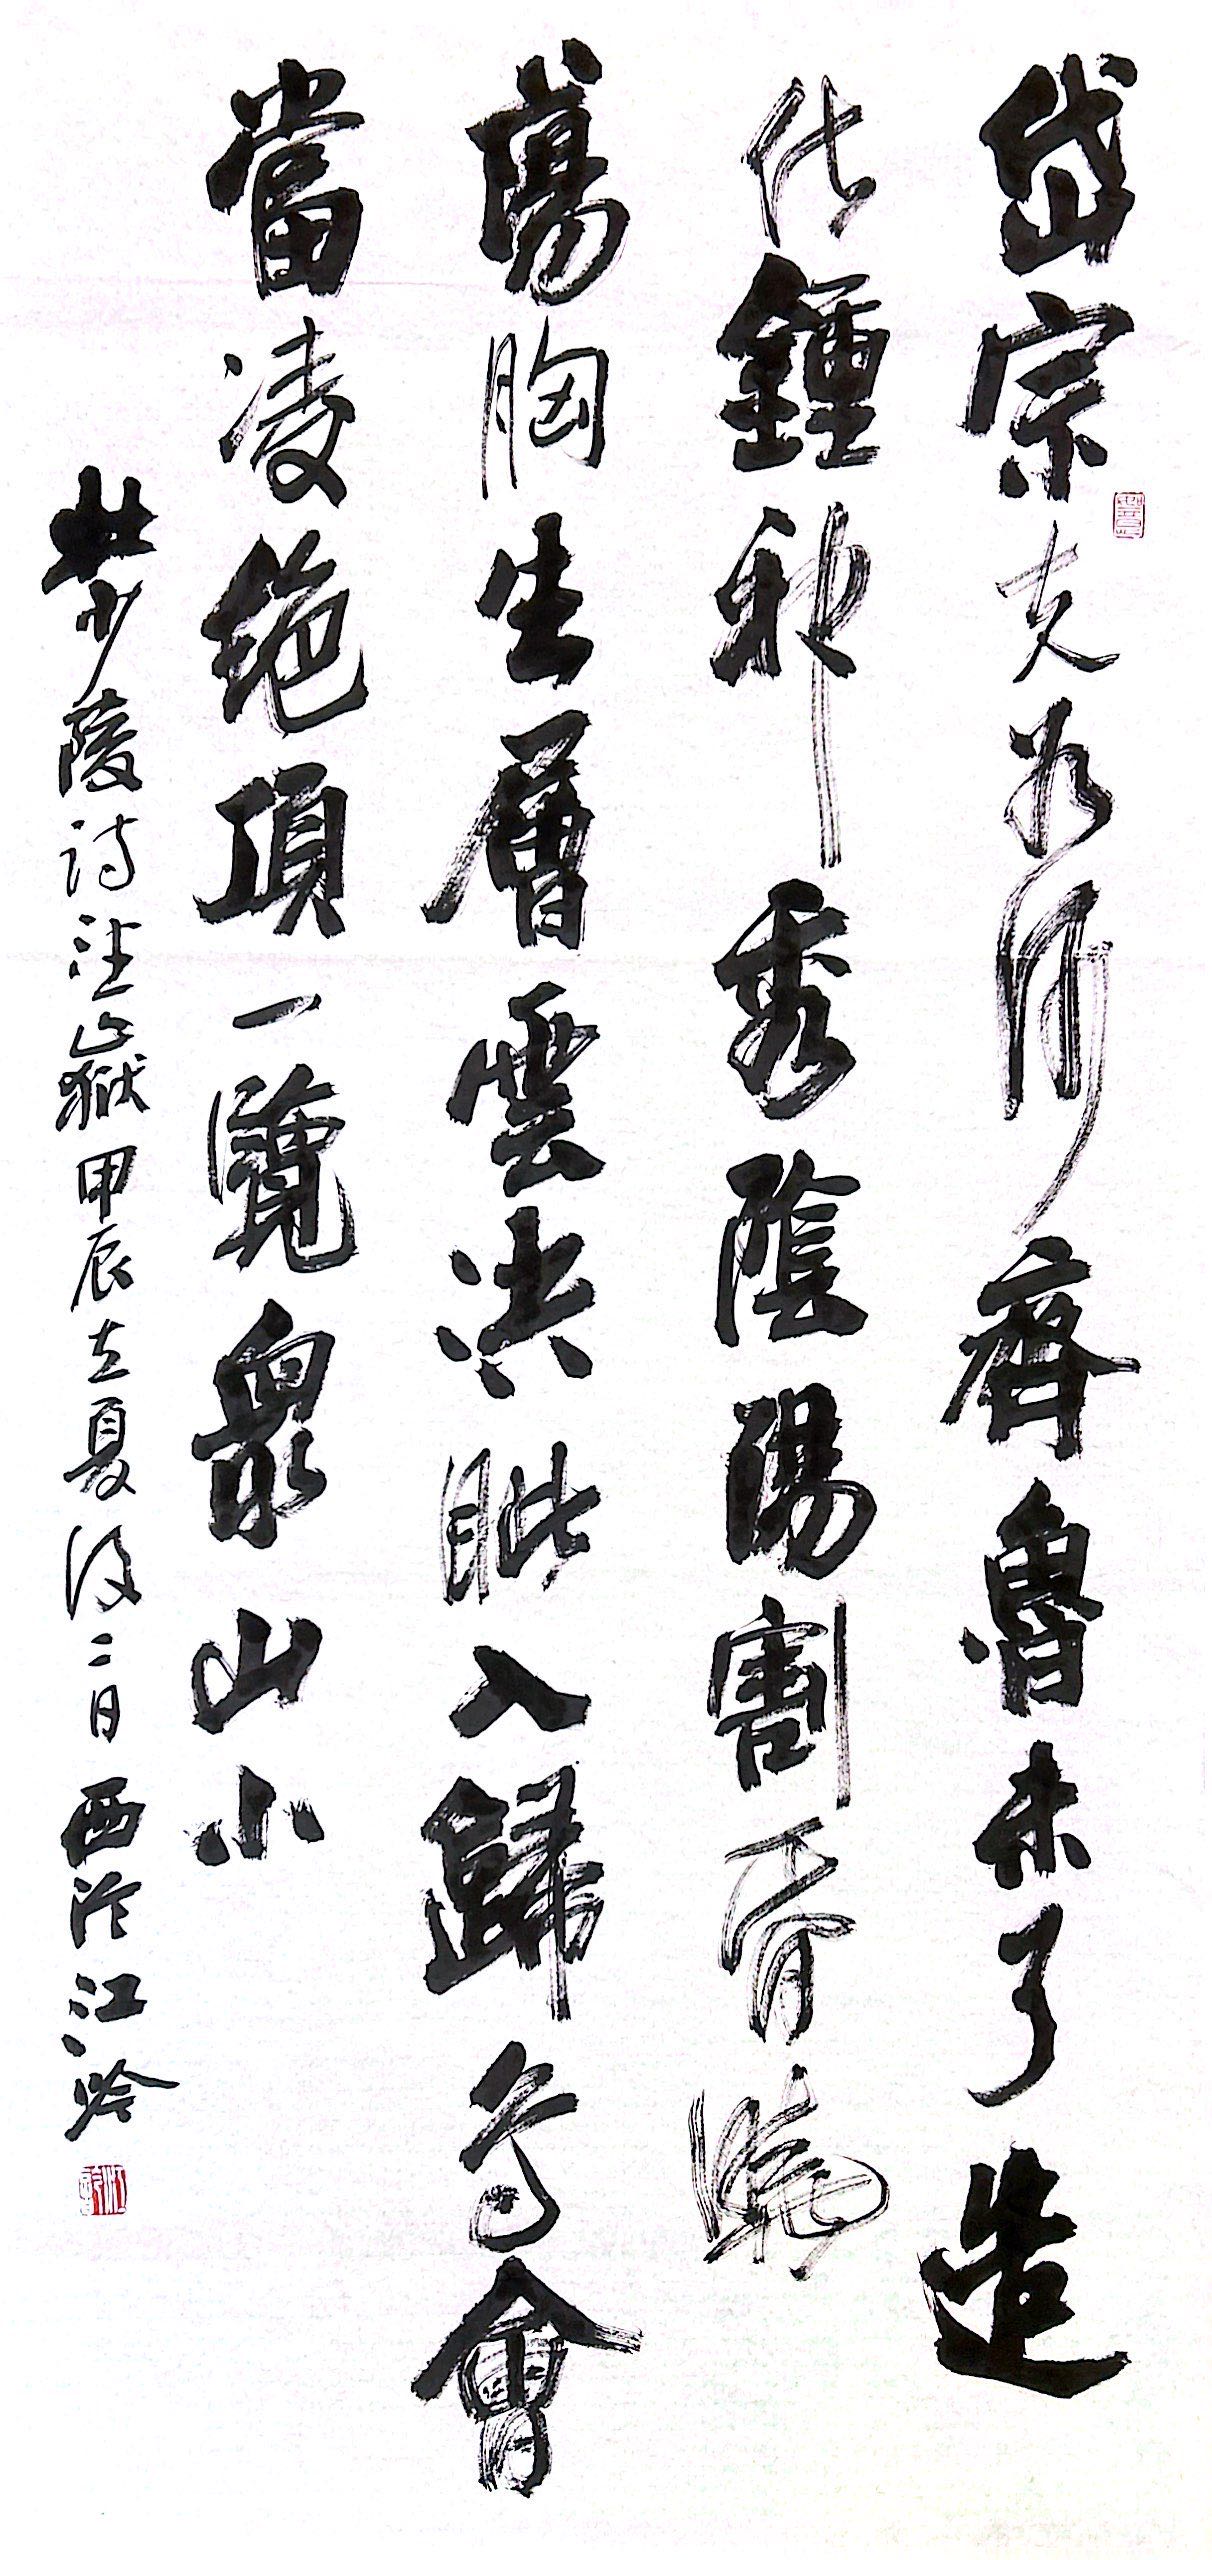 岱宗夫如何齊魯未了造
化鍾神秀陰陽割昏曉
蕩胸生層雲決眥入歸鳥會
當凌絶頂一覽眾山小
杜少陵詩望嶽甲辰立夏後二日西泠江吟